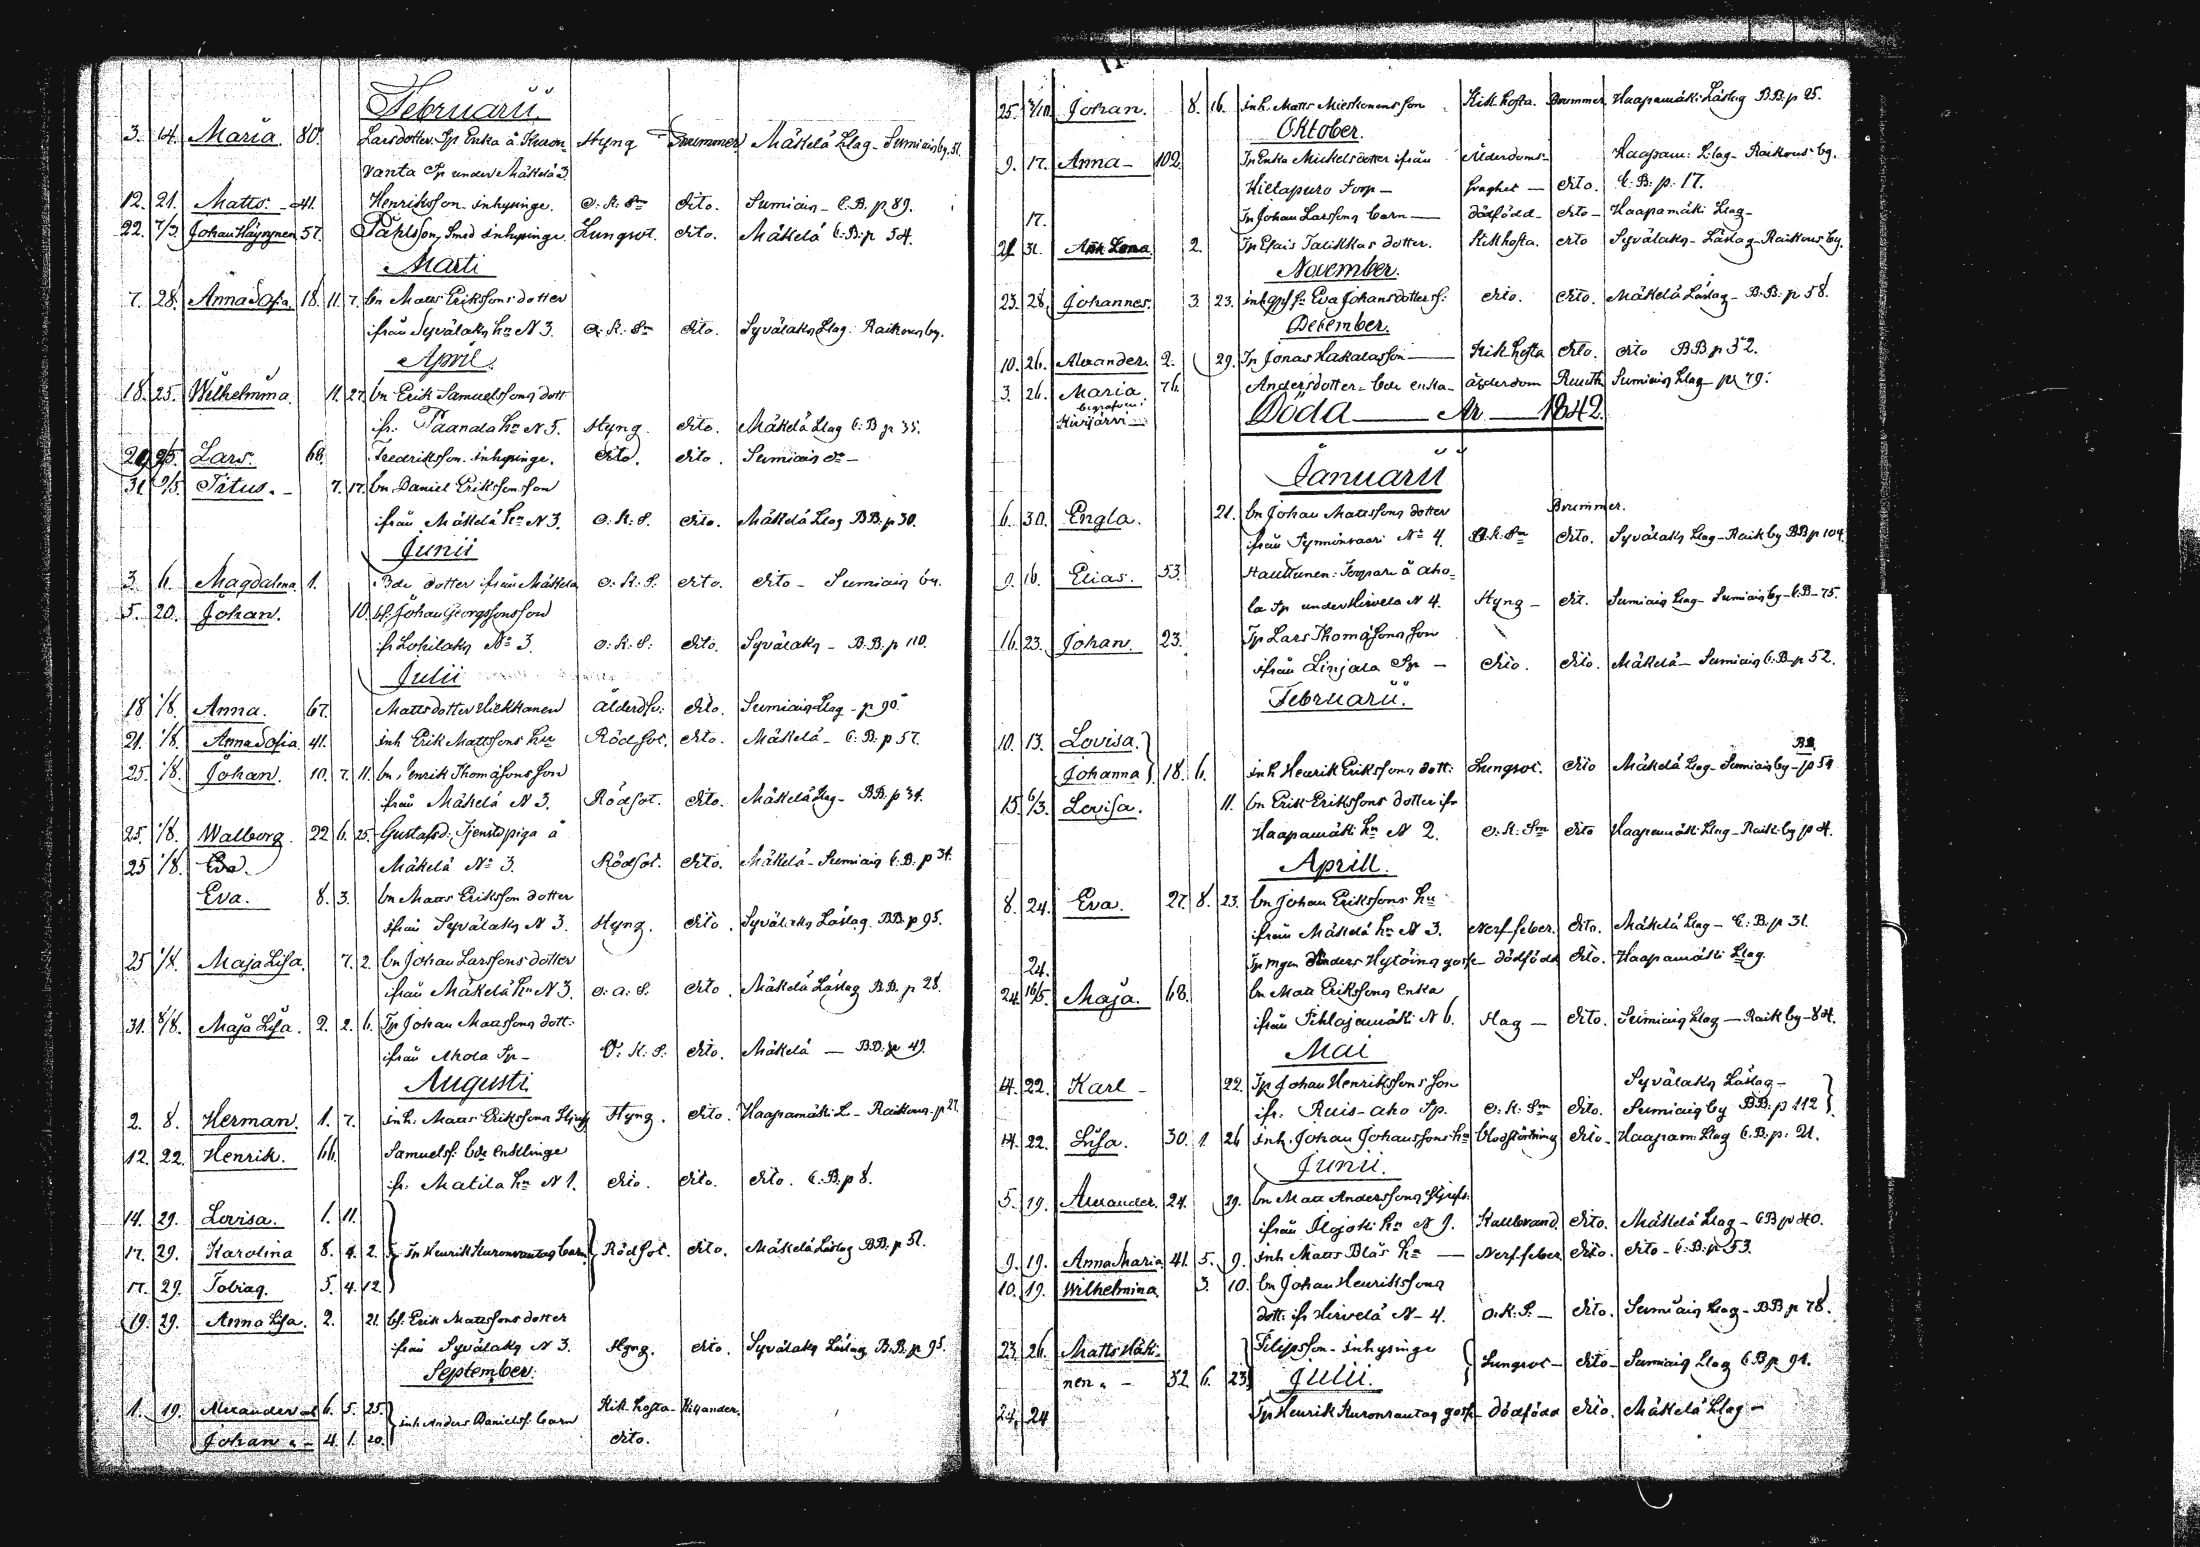 Februarii.
3. 14. Maria. 80. Larsdotter Tp Enka å Kuron- Hyng Brummer Mäkelä Llag - Sumiais by. 51.
vanta Tp under Mäkelä 3
12. 21. Matts. - 41. Henriksson inhysinge. O: K: Sm dito. Sumiais - C.B. p 89.
22. 7/3. Johan Häyrynen 57. Påhlsson, Smed inhysinge Lungsot. dito. Mäkelä C.B: p 54.
Marti
7. 28. Anna Sofia. 18. 11. 7. bn Matts Erikssons dotter
ifrån Syvälaks hn N 3. O: K: Sm dito. Syvälaks Llag. Raikous by.
April.
18. 25. Wilhelmina. 11. 27. bn Erik Samuelssons dott
ifr: Paanala hn N 5. Hyng. dito. Mäkelä Llag C:B p 35.
Lars. 68. Fredriksson. inhysinge. dito. dito. Sumiais do -
31. 9/5. Titus. - 7. 17. bn Daniel Eriksson son
ifrån Mäkelä hn N 3. O: K: S. dito. Mäkelä Llag BB: p 30.
Junii
3. 6. Magdalena 1. Bde dotter ifrån Mäkelä O: K: S. dito. dito - Sumiais by.
5. 20. Johan. 10. bf. Johan Georgssons son
ifr Lohilaks No 3. O: K: S: dito. Syvälaks - B.B. p 110.
Julii
18 1/8. Anna. 67. Mattsdotter Hiekkanen Ålderdsv: dito. Sumiais Llag - p 90.
21. 1/8. Anna Sofia 41. inh Erik Mattssons hu Rödsot. dito. Mäkelä - C: B: p 57.
25. 1/8. Johan. 10. 7. 11. bn Henrik Thomassons son
ifrån Mäkelä N 3. Rödsot. dito. Mäkelä Llag - BB: p 34.
25. 1/8. Walborg. 22 6. 25. Gustafsd: Tjenstpiga å
25 1/8. Eva. Mäkelä No 3. Rödsot. dito. Mäkelä - Sumiais C: B: p 34.
Eva. 8. 3. bn Matts Eriksson dotter
ifrån Syvälaks N 3. Hyng. dito. Syvälaks Läslag. BB. p 95.
25 1/8. Maja Lisa. 7. 2. bn Johan Larssons dotter
ifrån Mäkelä hn N 3. O: a: S: dito. Mäkelä Läslag B.B. p 28.
31. 8/8. Maja Lisa. 2. 2. 6. Tp Johan Matssons dott:
ifrån Ahola Tp - O: K: S: dito. Mäkelä - B.B: p 49.
Augusti
2. 8. Herman. 1. 7. inh: Matts Erikssons Hyng. dito. Haapamäki L - Raikous. p 27.
12. 22. Henrik. 66. Samuelsf: bde enklinge
ifr. Matila hn N 1. dito. dito. dito. C:B: p 8.
14. 29. Lovisa. 1. 11.
17. 29. Karolina 8. 4. 2. Tp Henrik Kuronvantas barn Rödsot. dito. Mäkelä Läslag BB. p 51.
17. 29. Tobias. 5. 4. 12.
19. 29. Anna Lisa. 2. 21. bf. Erik Mattssons dotter
ifrån Syvälaks N 3. Hyng. dito. Syvälaks Läslag B.B. p 95.
September.
1. 19. Alexander och 6. 5. 25. inh Anders Danielsf: barn Kik hosta - Kilander.
Johan 4. 1. 20. dito.
25. 3/10. Johan. 8. 16. inh. Matts Mieskonens son Kik hosta. Brummer. Haapamäki Läslag B.B. p 25.
Oktober.
9. 17. Anna - 102. Tp Enka Mickelsdotter ifrån Ålderdoms- Haapam: Llag - Raikous by.
Hietapuro Torp - svaghet - dito. C: B: p: 17.
17. Tp Johan Larssons barn - dödfödd - dito - Haapamäki Llag -
21. 31. Ann Lena. 2. Tp Esais Talikkas dotter. Kikhosta. dito Syvälaks - Läslag - Raikous by.
November.
23. 28. Johannes. 3. 23. Eva Johansdotter dito. dito. Mäkelä Läslag - B:B: p 58.
December.
10. 26. Alexander. 2. 29. Tp Jonas Hakalas son - Kik hosta dito. dito BB p 52.
3. 26. Maria 76. Andersdotter - bde enka - ålderdom Ruuth Sumiais Llag - p 79.
begrafven i
Kivijärvi -
Döda - År - 1842.
Januarii
6. 30. Engla. 21. bn Johan Mattssons dotter Brummer.
ifrån No 4. O: K: Sm dito. Syvälaks Llag - Raik by BB p 104.
9. 16. Elias. 53. Hautkunen: Torpare å Aho-
la Tp under Hirvelä N 4. Hyng - dit. Sumiais Llag - Sumiais by - C:B - 75.
16. 23. Johan. 23. Tp Lars Thomassons son
ifrån Linjala Tp - dito. dito. Mäkelä - Sumiais C:B - p 52.
Februarii.
10. 13. Lovisa.
Johanna 18. 6. inh Henrik Erikssons dott: Lungsot. dito Mäkelä Llag - Sumiais by - BB. p 54
15 6/3. Lovisa. 11. bn Erik Erikssons dotter ifr
Haapamäki hn N 2. O: K: Sm dito Haapamäki Llag - Raik: by p 4.
Aprill.
8. 24. Eva. 27. 8. 23. bn Johan Erikssons hu
ifrån Mäkelä hn N 3. Nerffeber. dito. Mäkelä Llag - C: B: p 31.
24. Anders Hytöins gosse - dödfödd dito. Haapamäki Llag.
24. 16/5. Maja. 68. bn Matt Erikssons enka
ifrån Pihlajamäki N 6. Slag - dito. Sumiais Llag - Raik by - 84.
Mai
14. 22. Karl - 22. Tp Johan Henrikssons son Syvälaks Läslag -
ifr: Ruis-aho Tp. O: K: Sm dito. Sumiais by BB: p 112
14. 22. Lisa. 30. 1. 26 inh. Johan Johanssons hu blodstörtning dito - Haapam: Llag C. B. p: 21.
Junii.
5. 19. Alexander. 24. 29. bn Matt Anderssons
ifrån Ilojoki hn N 9. Kallbrand. dito. Mäkelä Llag - CB p 40.
9. 19. Anna Maria 41. 5. 9. inh Matts Blås hu - Nerffeber dito. dito - C: B: p 53.
10. 19. Wilhelmina 3. 10. bn Johan Henrikssons
dott: ifr Hirvelä N - 4. O: K: S. - dito. Sumiais Llag - BB p 78.
23. 26. Matts Häki- Filipsson - inhysinge Lungsot - dito - Sumiais Llag C B p 91.
nen - 52 6. 23. Julii.
24. 24 Tp Henrik Kuronvantas gosse - dödfödd dito. Mäkelä Llag -